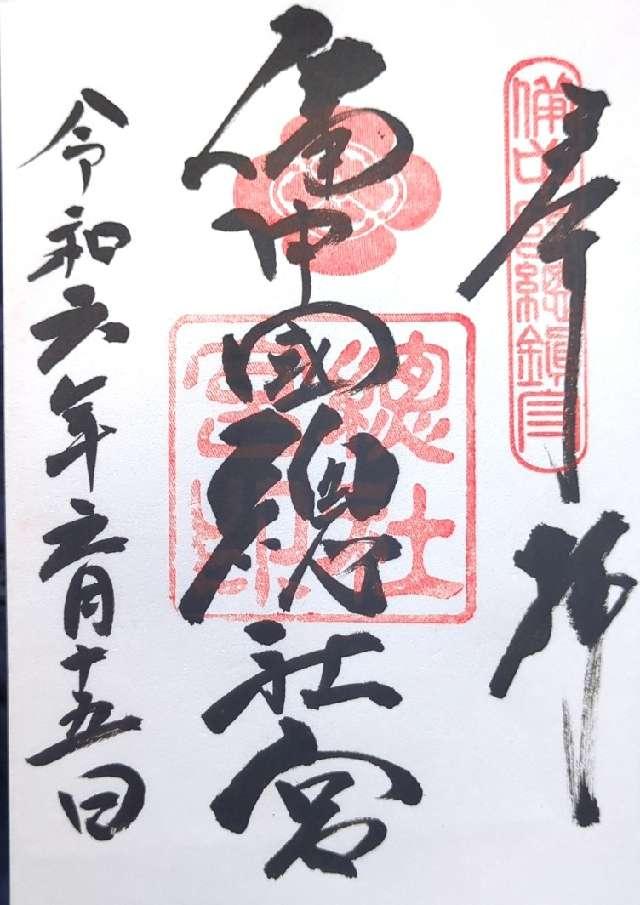 奉拝
備中國総鎮守
備中國總社宮
總社宮印
令和六年六月十五日